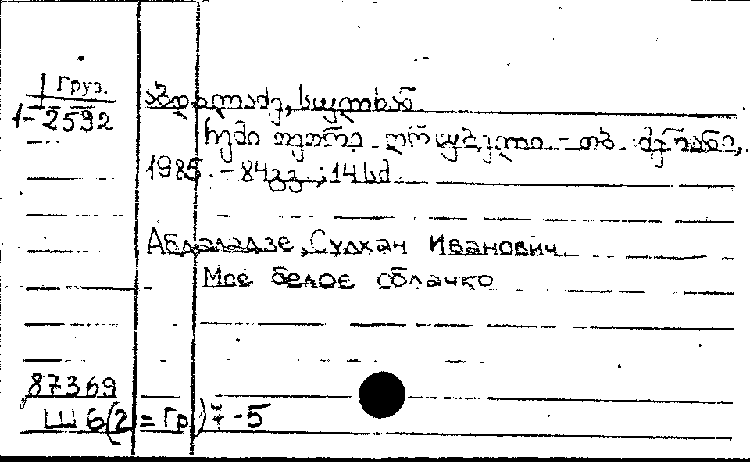 Груз.
1-2592
აბდალაძე, სულხან
ჩემი თეთრი ღრუბელი. - თბ. მერანი,
1985. - 84გვ.; 14 სმ.
Абдаладзе, Сулхан Иванович
Мое белое облачко
87369
Ш6(2=Гр)7-5